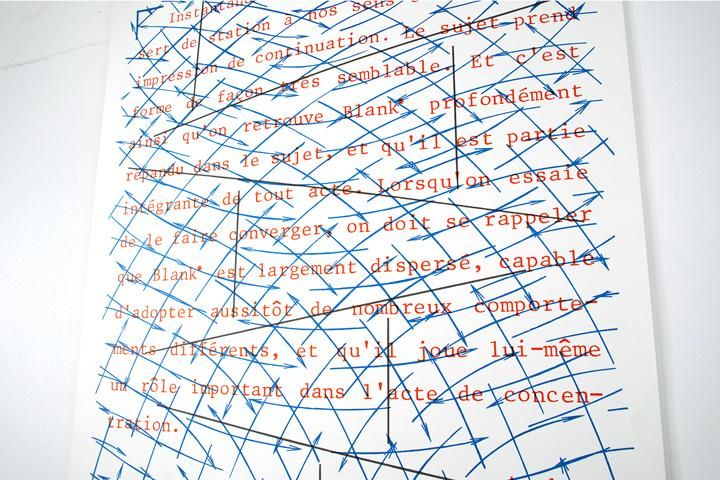 Instantané
sert de station à nos sens
impression de continuation. Le sujet prend
forme de façon très semblable. Et c'est
ainsi qu'on retrouve Blank* profondément
répandu dans le sujet, et qu'il est partie
intégrante de tout acte. Lorsqu'on essaie
de le faire converger, on doit se rappeler
que Blank* est largement dispersé, capable
d'adopter aussitôt de nombreux comporte-
ments différents, et qu'il joue lui-même
un rôle important dans l'acte de concen-
tration.